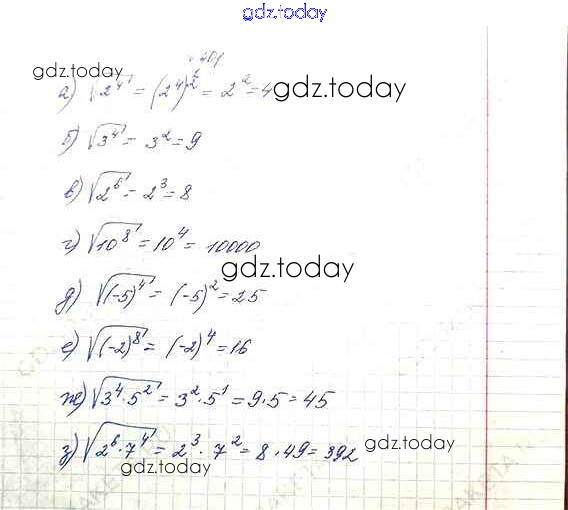 gdz.today
401
gdz.today
а) √2⁴ = (2⁴)^½ = 2² = 4 gdz.today
б) √3⁴ = 3² = 9
в) √2⁶ = 2³ = 8
г) √10⁸ = 10⁴ = 10000
gdz.today
д) √(-5)⁴ = (-5)² = 25
е) √(-2)⁸ = (-2)⁴ = 16
ж) √3⁴·5² = 3²·5¹ = 9·5 = 45
з) √2⁶·7⁴ = 2³·7² = 8·49 = 392 gdz.today
gdz.today